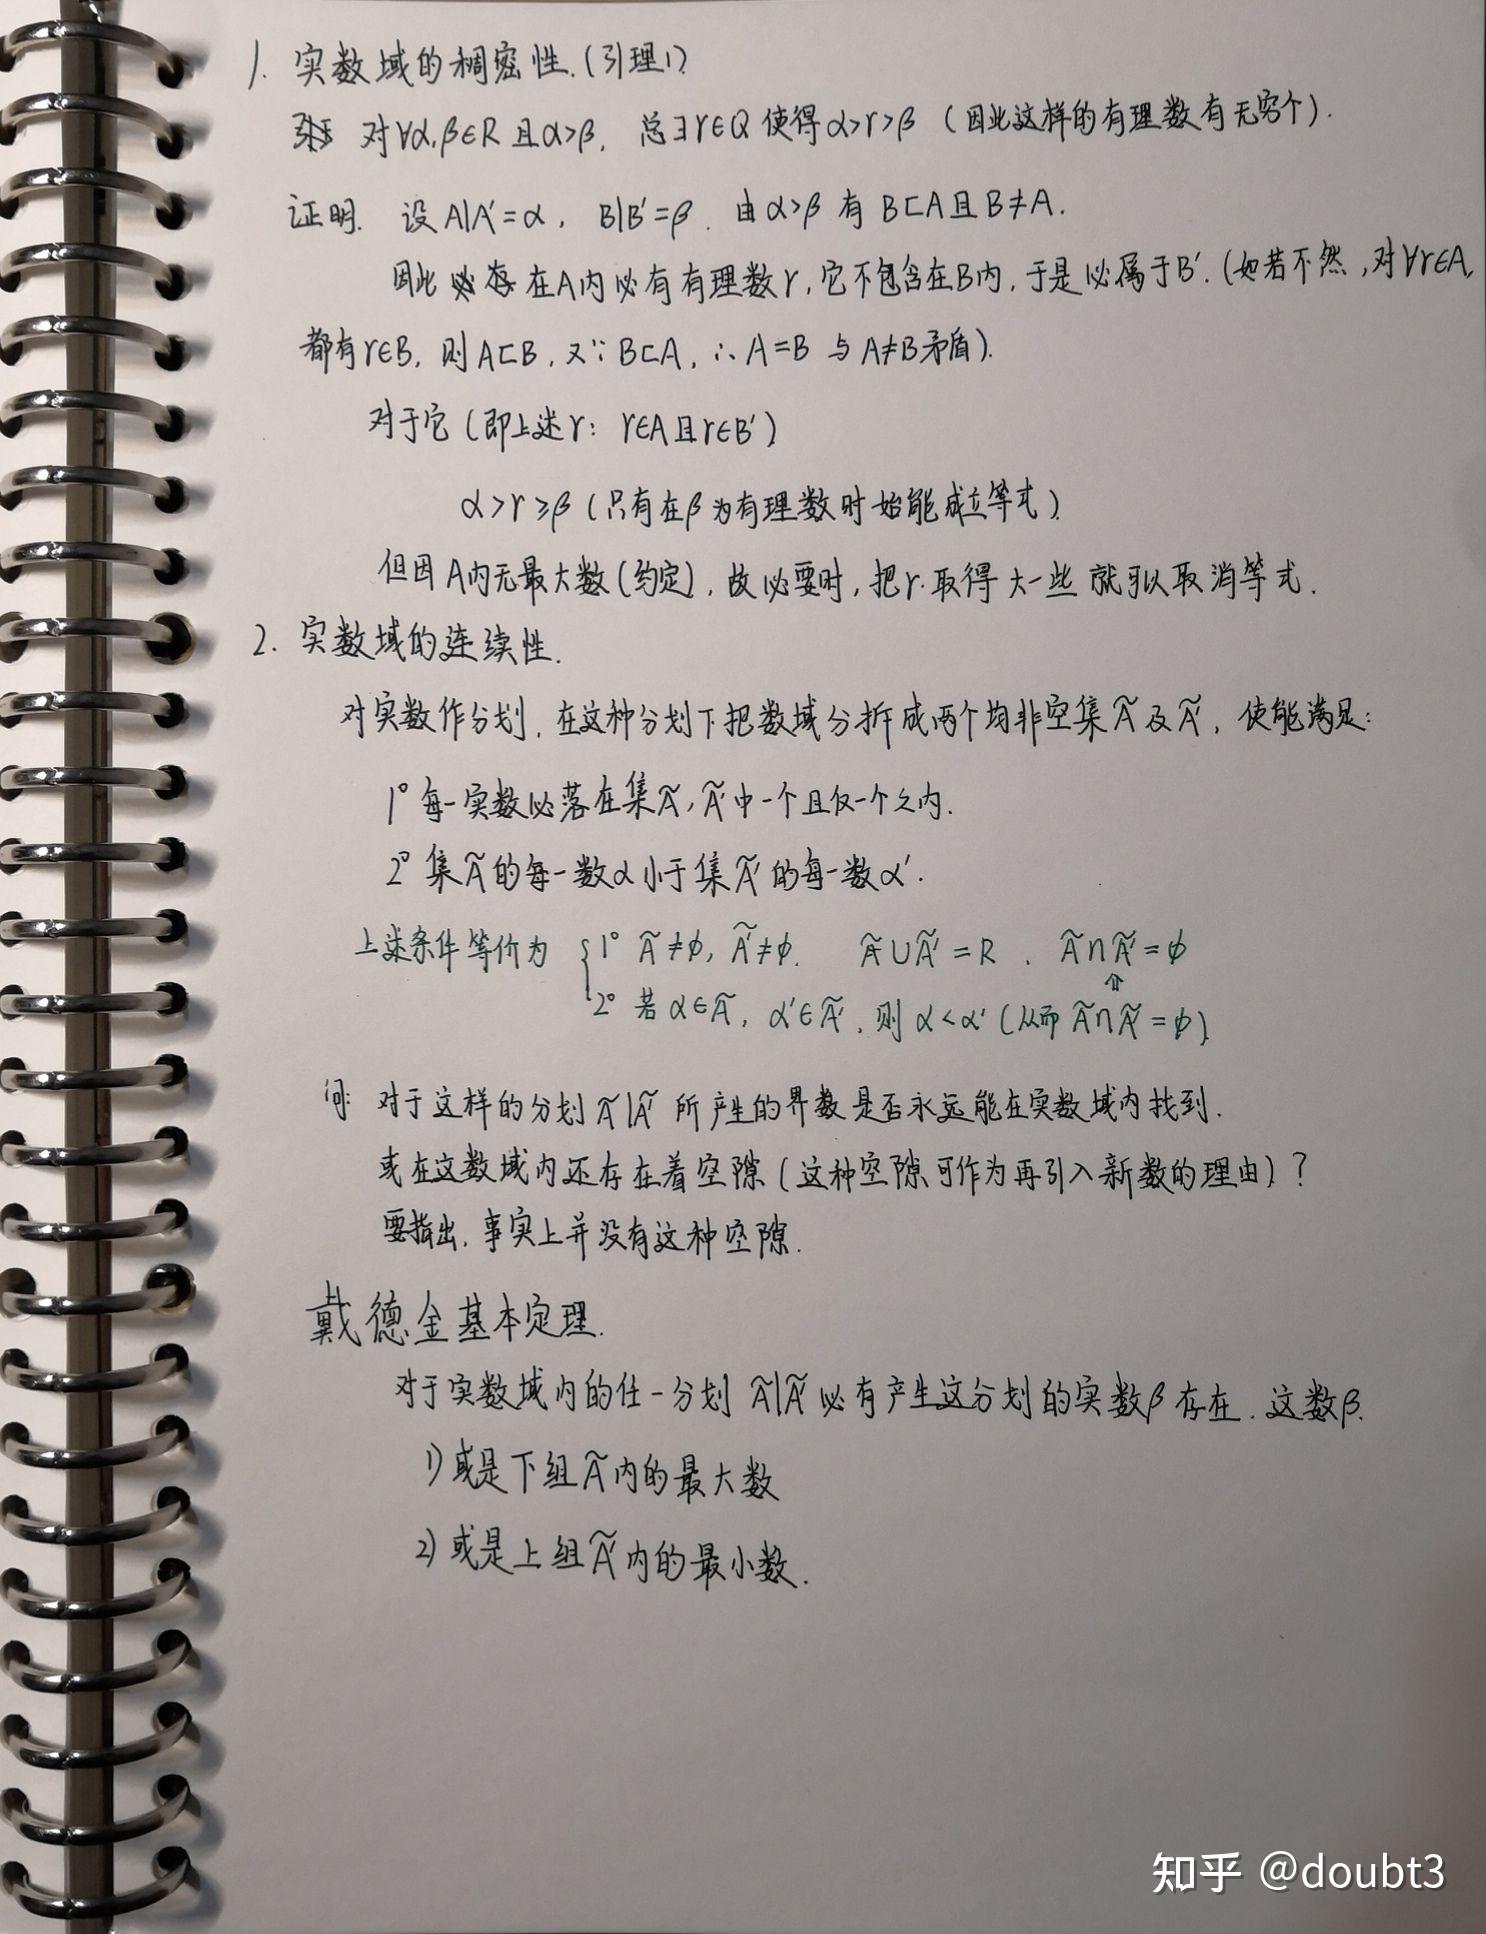 1. 实数域的稠密性.(引理1)
对∀α,β∈R且α>β, 总∃r∈Q使得α>r>β (因此这样的有理数有无穷个).
证明. 设A|A'=α, B|B'=β. 由α>β有B⊂A且B≠A.
因此 在A内必有有理数r,它不包含在B内,于是必属于B'.(如若不然,对∀r∈A,
都有r∈B, 则A⊂B,又∵B⊂A,∴A=B与A≠B矛盾).
对于它(即上述r: r∈A且r∈B')
α>r≥β(只有在β为有理数时始能成立等式)
但因A内无最大数(约定),故必要时,把r取得大一些就可以取消等式.
2. 实数域的连续性.
对实数作分划,在这种分划下把数域分拆成两个均非空集Ã及Ã', 使能满足:
1° 每一实数必落在集Ã,Ã'中一个且仅一个之内.
2° 集Ã的每一数α小于集Ã'的每一数α'.
上述条件等价为 { 1° Ã≠∅, Ã'≠∅. Ã∪Ã'=R. Ã∩Ã'=∅
⇑
2° 若α∈Ã, α'∈Ã', 则α<α'(从而Ã∩Ã'=∅)
问: 对于这样的分划Ã|Ã'所产生的界数是否永远能在实数域内找到.
或在这数域内还存在着空隙(这种空隙可作为再引入新数的理由)?
要指出,事实上并没有这种空隙.
戴德金基本定理.
对于实数域内的任一分划Ã|Ã'必有产生这分划的实数β存在.这数β.
1)或是下组Ã内的最大数
2)或是上组Ã'内的最小数.
知乎 @doubt3